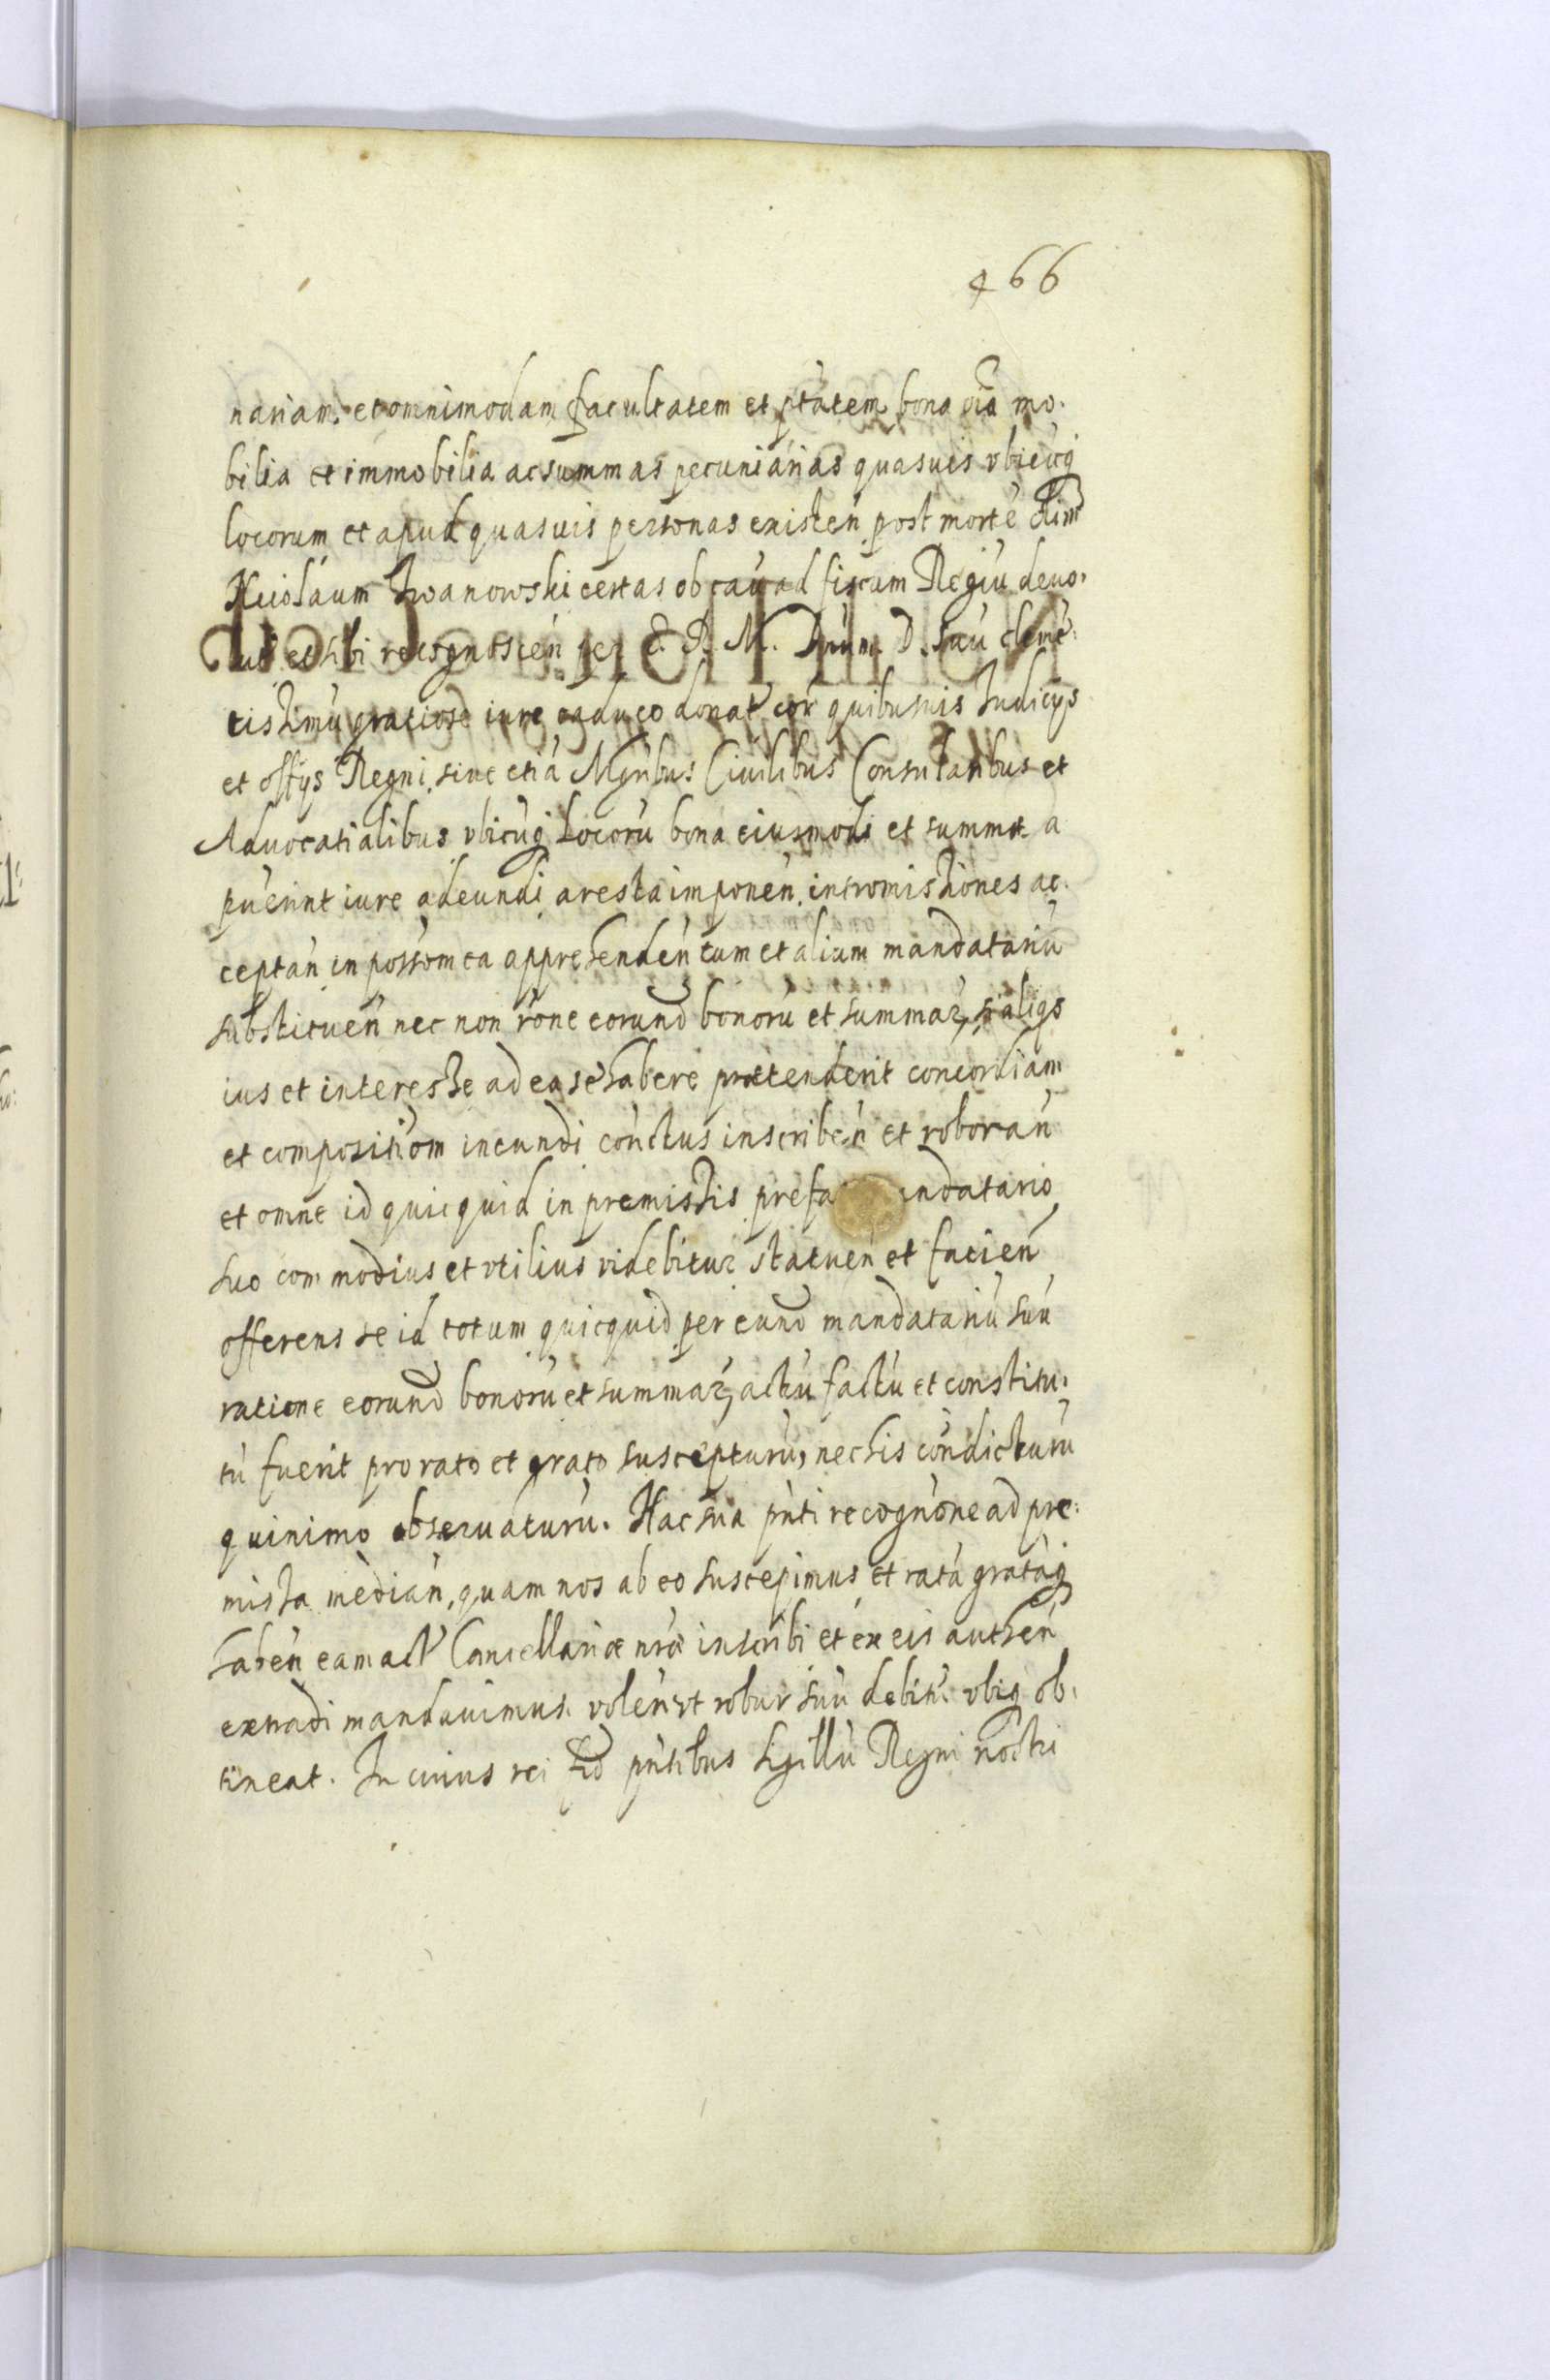 466
nariam et omnimodam facultatem et ptãtem bona oĩa mo.
bilia et immobilia ac summas pecuniarias quasuis vbicũq
locorum et apud quasuis personas existeñ post mortẽ olim
Nicolaum Iwanowski certas ob cãũ ad fiscum Regiũ deuo.
lut et sibi recognosceñ per S. R. M. Dnũm D. suũ clemẽ:
tissimũ gratiose iure caduco donat cor̃ quibusuis Iudicys
et offys Regni, siue etiã Mgr̃ibus Ciuilibus Consularibus et
Aduocatialibus vbicũq locorũ bona eiusmodi et summæ a
puerint iure adeundi aresta imponeñ, intromissiones ac
ceptañ in possõm ea apprehendeñ eum et alium mandatariũ
substitueñ nec non rõne eorund bonorũ et summar, si aliqs
ius et interesse ad ea se habere prætenderit concordiam
et compositiõm ineundi cõnctus inscribeñ et roborañ
et omne id quicquid in premissis prefa andatario
suo commodius et vtilius videbitur statueñ et facieñ
offerens se id totum quicquid per eund mandatariũ suũ
ratione eorund bonorũ et summar, actũ factũ et constitu.
tũ fuerit pro rato et grato suscepturũ, nec his cõndicturũ
quinimo obseruaturũ. Hac sua pñti recognõne ad pre:
missa mediañ, quam nos ab eo suscepimus et ratã gratãq
habeñ eam act Cancellariæ nr̃æ inscribi et ex eis autheñ
extradi mandauimus. voleñ vt robur suũ debit vbiq ob.
tineat. In cuius rei fid pñtibus sigillũ Regni nostri